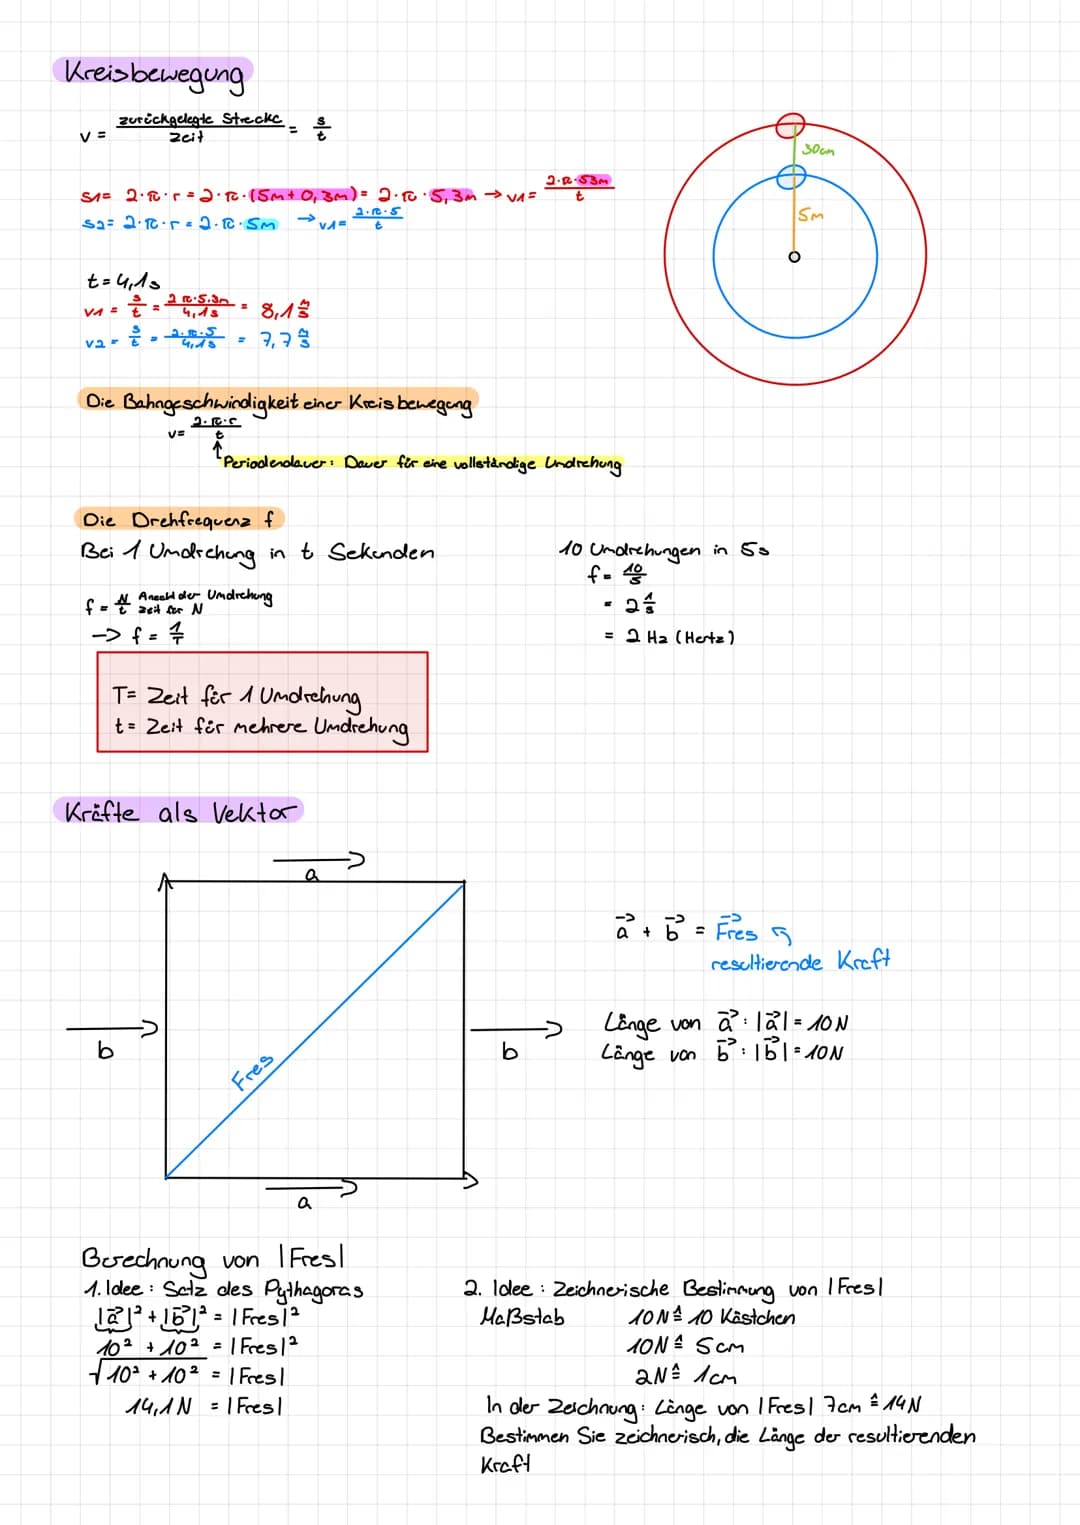 Kreisbewegung
v = zurückgelegte Strecke / Zeit = s/t
30cm
5m
s1= 2·π·r = 2·π·(5m+0,3m) = 2·π·5,3m → v1= 2·π·53m / t
s2= 2·π·r = 2·π·5m → v1= 2·π·5 / t
t = 4,1s
v1 = s/t = 2π·5,3m / 4,1s = 8,1 m/s
v2 = s/t = 2·π·5 / 4,1s = 7,7 m/s
Die Bahngeschwindigkeit einer Kreisbewegung
v= 2·π·r / t
↑ Periodendauer: Dauer für eine vollständige Undrehung
Die Drehfrequenz f
Bei 1 Umdrehung in t Sekunden
f = N/t Anzahl der Umdrehung / Zeit für N
→ f = 1/T
10 Undrehungen in 5s
f = 10/5
= 2 1/s
= 2 Hz (Hertz)
T= Zeit für 1 Umdrehung
t = Zeit für mehrere Umdrehung
Kräfte als Vektor
a
b
Fres
b
a
a⃗ + b⃗ = F⃗res
resultierende Kraft
Länge von a⃗ : |a⃗| = 10N
Länge von b⃗ : |b⃗| = 10N
Berechnung von |Fres|
1. Idee : Satz des Pythagoras
|a⃗|² + |b⃗|² = |Fres|²
10² + 10² = |Fres|²
√10² + 10² = |Fres|
14,1N = |Fres|
2. Idee : Zeichnerische Bestimmung von |Fres|
Maßstab 10N ≙ 10 Kästchen
10N ≙ 5cm
2N ≙ 1cm
In der Zeichnung: Länge von |Fres| 7cm ≙ 14N
Bestimmen Sie zeichnerisch, die Länge der resultierenden
Kraft